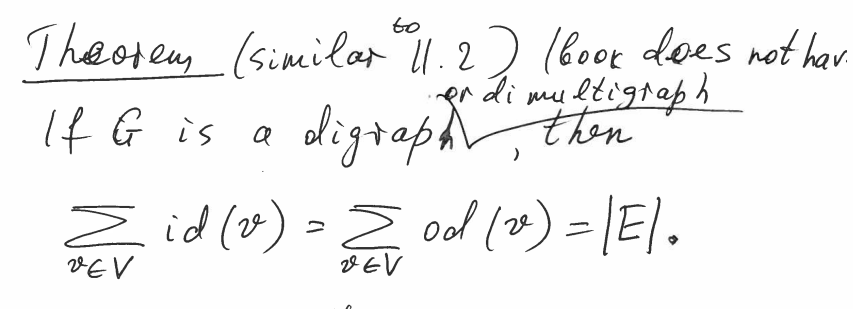 Theorem (similar to 11.2) (book does not hav
If G is a digraph or dimultigraph, then
∑ id(v) = ∑ od(v) = |E|.
v∈V v∈V